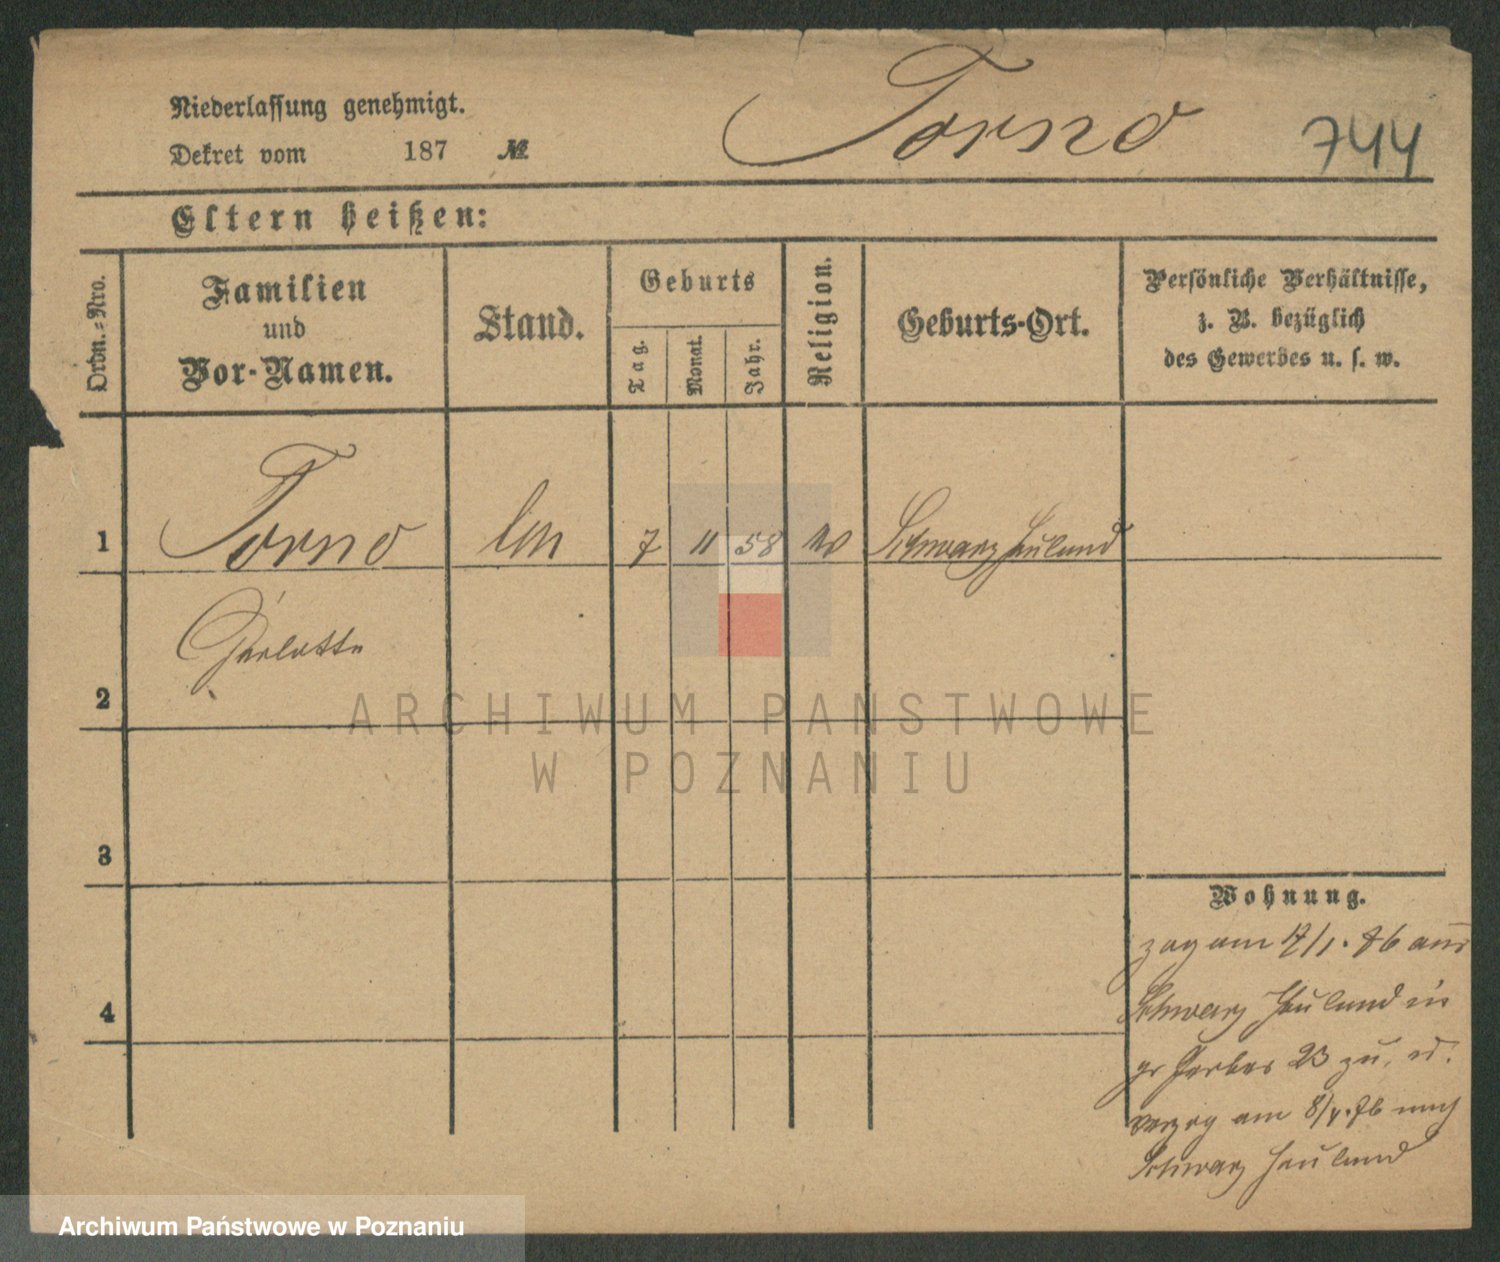 Niederlassung genehmigt.
Dekret vom 187 №
Torno
744
Eltern heißen:
Ordn.=Nro.
Familien
und
Vor-Namen.
Stand.
Geburts
Tag.
Monat.
Jahr.
Religion.
Geburts-Ort.
Persönliche Verhältnisse,
z. B. bezüglich
des Gewerbes u. s. w.
1 Torno 7 11 58 Schwarz Hauland
Charlotte
2
3
4
Wohnung.
zog am 17/1. 76 aus
Schwarz Hauland in
gr Gerber 23 zu. u.
verzog am 8/4. 76 nach
Schwarz Hauland
ARCHIWUM PAŃSTWOWE
W POZNANIU
Archiwum Państwowe w Poznaniu